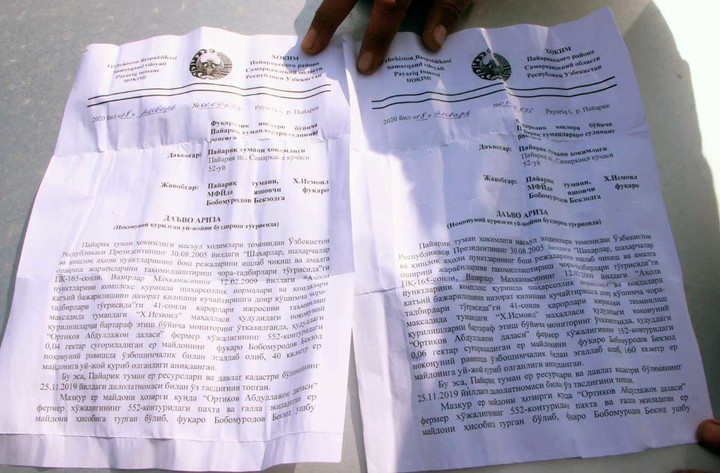 Ozbekiston Respublikasi
Samarqand viloyati
Payariq tumani
HOKIMI
ХОКИМ
Пайарикского района
Самаркандской области
Республики Узбекистан
2020 йил "18" февраль
Payariq t. р. Пайарик
Фуқаролик ишлари бўйича
Пайариқ туманлараро судининг
раисига
Даъвогар: Пайариқ тумани ҳокимлиги
Пайариқ ш., Самарқанд кўчаси
52-уй
Жавобгар: Пайариқ тумани, Х.Исмоил
МФЙда яшовчи фуқаро
Бобомуродов Бекзодга
ДАЪВО АРИЗА
(Ноқонуний қурилган уй-жойни буздириш тўғрисида)
Пайариқ туман ҳокимлиги масъул ходимлари томонидан Ўзбекистон
Республикаси Президентининг 30.08.2005 йилдаги "Шаҳарлар, шаҳарчалар
ва қишлоқ аҳоли пунктларининг бош режаларини ишлаб чиқиш ва амалга
ошириш жараёнларини такомиллаштириш чора-тадбирлари тўғрисида"ги
ПҚ-165-сонли, Вазирлар Маҳкамасининг 12.02.2009 йилдаги "Аҳоли
пунктларини комплекс қуришда шаҳарсозлик нормалари ва қоидалари
қатъий бажарилишини назорат қилишни кучайтиришга доир қўшимча чора-
тадбирлар тўғрисида"ги 41-сонли қарорлари ижросини таъминлаш
мақсадида тумандаги "Х.Исмоил" маҳалласи ҳудудидаги ноқонуний
қурилишларни бартараф этиш бўйича мониторинг ўтказилганда, ҳудуддаги
"Ортиков Абдуллажон даласи" фермер хўжалигининг 552-контуридаги
0,04 гектар суғориладиган ер майдонини фуқаро Бобомуродов Бекзод
ноқонуний равишда ўзбошимчалик билан эгаллаб олиб, 40 кв.метр ер
майдонига уй-жой қуриб олганлиги аниқланган.
Бу эса, Пайариқ туман ер ресурслари ва давлат кадастри бўлимининг
25.11.2019 йилдаги далолатномаси билан ўз тасдиғини топган.
Мазкур ер майдони ҳозирги кунда "Ортиков Абдуллажон даласи"
фермер хўжалигининг 552-контуридаги пахта ва ғалла экиладиган ер
майдони ҳисобига турган бўлиб, фуқаро Бобомуродов Бекзод ушбу
Ozbekiston Respublikasi
Samarqand viloyati
Payariq tumani
HOKIMI
ХОКИМ
Пайарикского района
Самаркандской области
Республики Узбекистан
2020 йил "18" февраль
Payariq t. р. Пайарик
Фуқаролик ишлари бўйича
Пайариқ туманлараро судининг
раисига
Даъвогар: Пайариқ тумани ҳокимлиги
Пайариқ ш., Самарқанд кўчаси
52-уй
Жавобгар: Пайариқ тумани, Х.Исмоил
МФЙда яшовчи фуқаро
Бобомуродов Бекзодга
ДАЪВО АРИЗА
(Ноқонуний қурилган уй-жойни буздириш тўғрисида)
Пайариқ туман ҳокимлиги масъул ходимлари томонидан Ўзбекистон
Республикаси Президентининг 30.08.2005 йилдаги "Шаҳарлар, шаҳарчалар
ва қишлоқ аҳоли пунктларининг бош режаларини ишлаб чиқиш ва амалга
ошириш жараёнларини такомиллаштириш чора-тадбирлари тўғрисида"ги
ПҚ-165-сонли, Вазирлар Маҳкамасининг 12.02.2009 йилдаги "Аҳоли
пунктларини комплекс қуришда шаҳарсозлик нормалари ва қоидалари
қатъий бажарилишини назорат қилишни кучайтиришга доир қўшимча чора-
тадбирлар тўғрисида"ги 41-сонли қарорлари ижросини таъминлаш
мақсадида тумандаги "Х.Исмоил" маҳалласи ҳудудидаги ноқонуний
қурилишларни бартараф этиш бўйича мониторинг ўтказилганда, ҳудуддаги
"Ортиков Абдуллажон даласи" фермер хўжалигининг 552-контуридаги
0,06 гектар суғориладиган ер майдонини фуқаро Бобомуродов Бекзод
ноқонуний равишда ўзбошимчалик билан эгаллаб олиб, 160 кв.метр ер
майдонига уй-жой қуриб олганлиги аниқланган.
Бу эса, Пайариқ туман ер ресурслари ва давлат кадастри бўлимининг
25.11.2019 йилдаги далолатномаси билан ўз тасдиғини топган.
Мазкур ер майдони ҳозирги кунда "Ортиков Абдуллажон даласи"
фермер хўжалигининг 552-контуридаги пахта ва ғалла экиладиган ер
майдони ҳисобига турган бўлиб, фуқаро Бобомуродов Бекзод ушбу